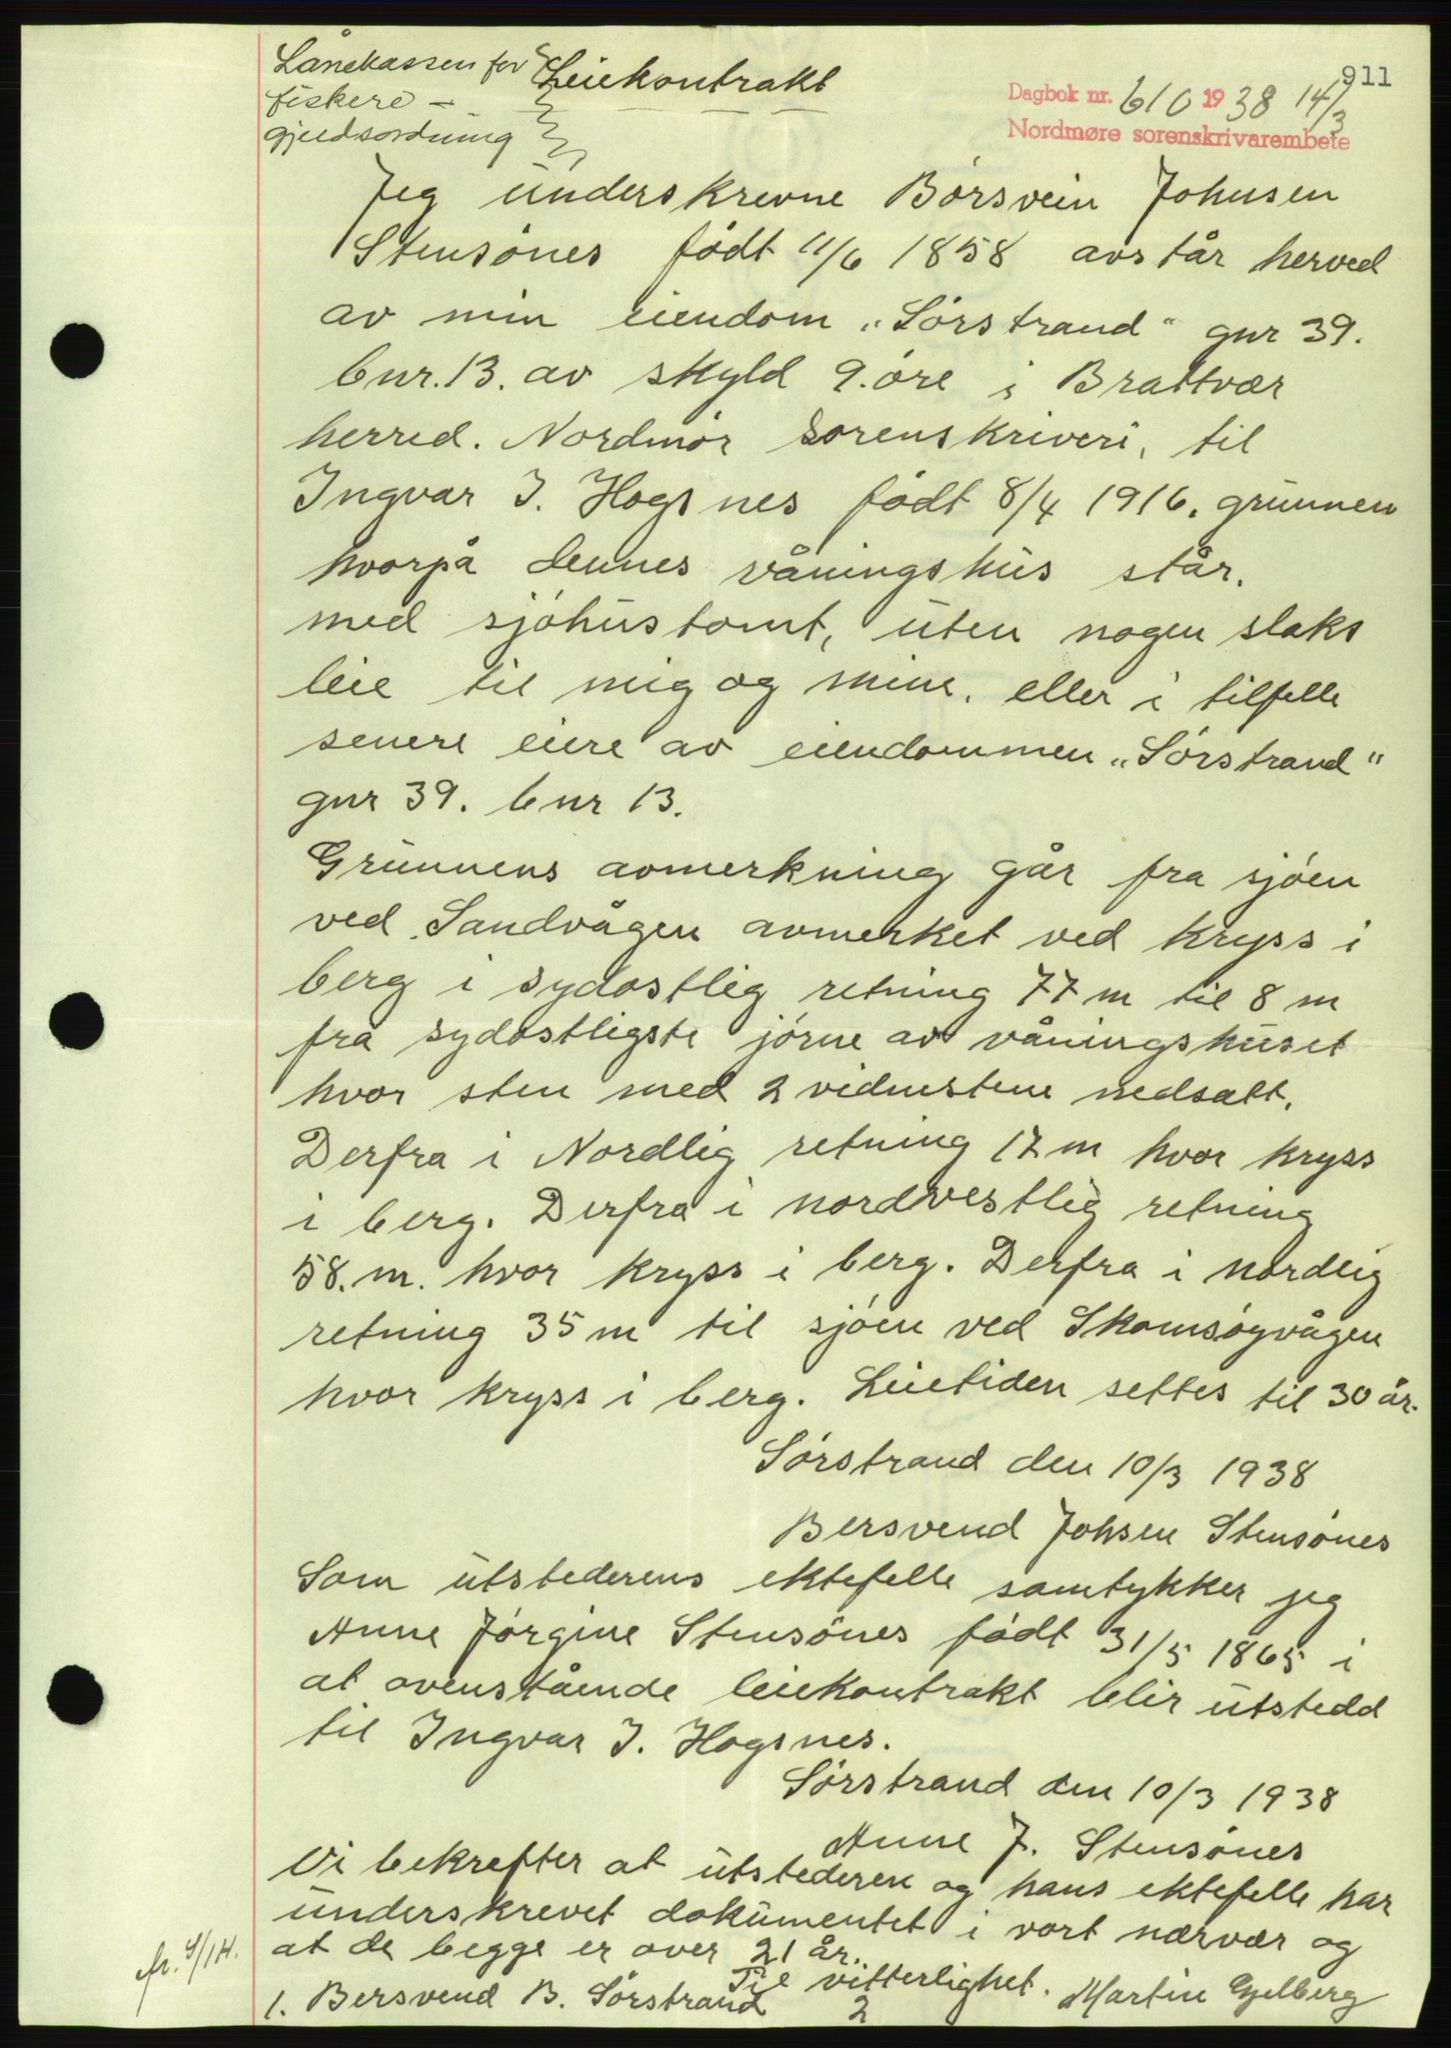 Lånekassen for
fiskere –
gjeldsordning
Leiekontrakt
911
Dagbok nr. 610 1938 14/3
Nordmøre sorenskrivarembete
Jeg underskrevne Børsvein Johnsen
Stensønes født 11/6 1858 avstår herved
av min eiendom „Sørstrand" gnr 39.
bnr. 13. av skyld 9. øre i Brattvær
herred. Nordmør Sorenskriveri, til
Ingvar J. Hogsnes født 8/4 1916. grunnen
hvorpå dennes våningshus står.
med sjøhustomt, uten nogen slaks
leie til mig og mine. eller i tilfelle
senere eiere av eiendommen „Sørstrand"
gnr 39. bnr 13.
Grunnens avmerkning går fra sjøen
ved Sandvågen avmerket ved kryss i
berg i sydøstlig retning 77 m til 8 m
fra sydøstligste jørne av våningshuset
hvor sten med 2 vidnestene nedsatt.
Derfra i Nordlig retning 17 m hvor kryss
i berg. Derfra i nordvestlig retning
58. m. hvor kryss i berg. Derfra i nordlig
retning 35 m til sjøen ved Skomsøyvågen
hvor kryss i berg. Leietiden settes til 30 år.
Sørstrand den 10/3 1938
Bersvend Johsen Stensønes
Som utstederens ektefelle samtykker jeg
Anne Jørgine Stensönes født 31/5 1865 i
at ovenstående leiekontrakt blir utstedd
til Ingvar J. Hogsnes.
Sørstrand den 10/3 1938
Anne J. Stensønes
Vi bekrefter at utstederen og hans ektefelle har
underskrevet dokumentet i vort nærvær og
at de begge er over 21 år.
Til vitterlighet.
1. Bersvend B. Sørstrand 2 Martin Gjelberg